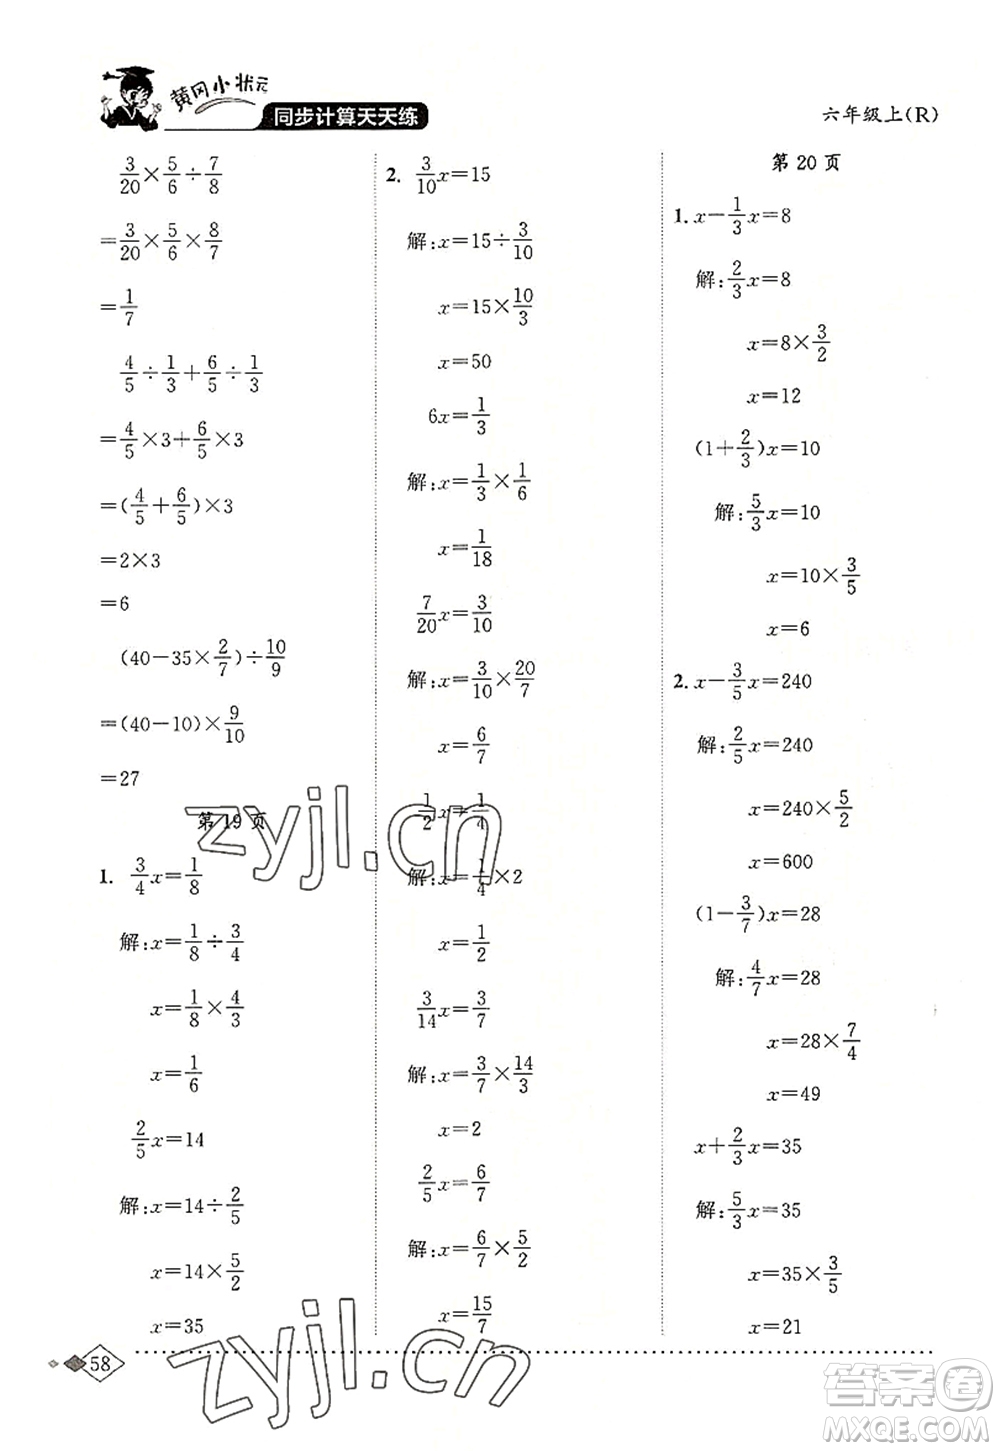 黄冈小状元
同步计算天天练
六年级上(R)
3/20×5/6÷7/8
=3/20×5/6×8/7
=1/7
4/5÷1/3+6/5÷1/3
=4/5×3+6/5×3
=(4/5+6/5)×3
=2×3
=6
(40-35×2/7)÷10/9
=(40-10)×9/10
=27
第 19 页
1. 3/4x=1/8
解:x=1/8÷3/4
x=1/8×4/3
x=1/6
2/5x=14
解:x=14÷2/5
x=14×5/2
x=35
2. 3/10x=15
解:x=15÷3/10
x=15×10/3
x=50
6x=1/3
解:x=1/3×1/6
x=1/18
7/20x=3/10
解:x=3/10×20/7
x=6/7
1/2x=1/4
解:x=1/4×2
x=1/2
3/14x=3/7
解:x=3/7×14/3
x=2
2/5x=6/7
解:x=6/7×5/2
x=15/7
第 20 页
1. x-1/3x=8
解:2/3x=8
x=8×3/2
x=12
(1+2/3)x=10
解:5/3x=10
x=10×3/5
x=6
2. x-3/5x=240
解:2/5x=240
x=240×5/2
x=600
(1-3/7)x=28
解:4/7x=28
x=28×7/4
x=49
x+2/3x=35
解:5/3x=35
x=35×3/5
x=21
58
zyjl.cn
zyjl.cn
答案圈
MXQE.COM